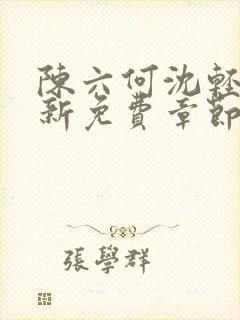 陳六何沈輕
新免費章節
張學群